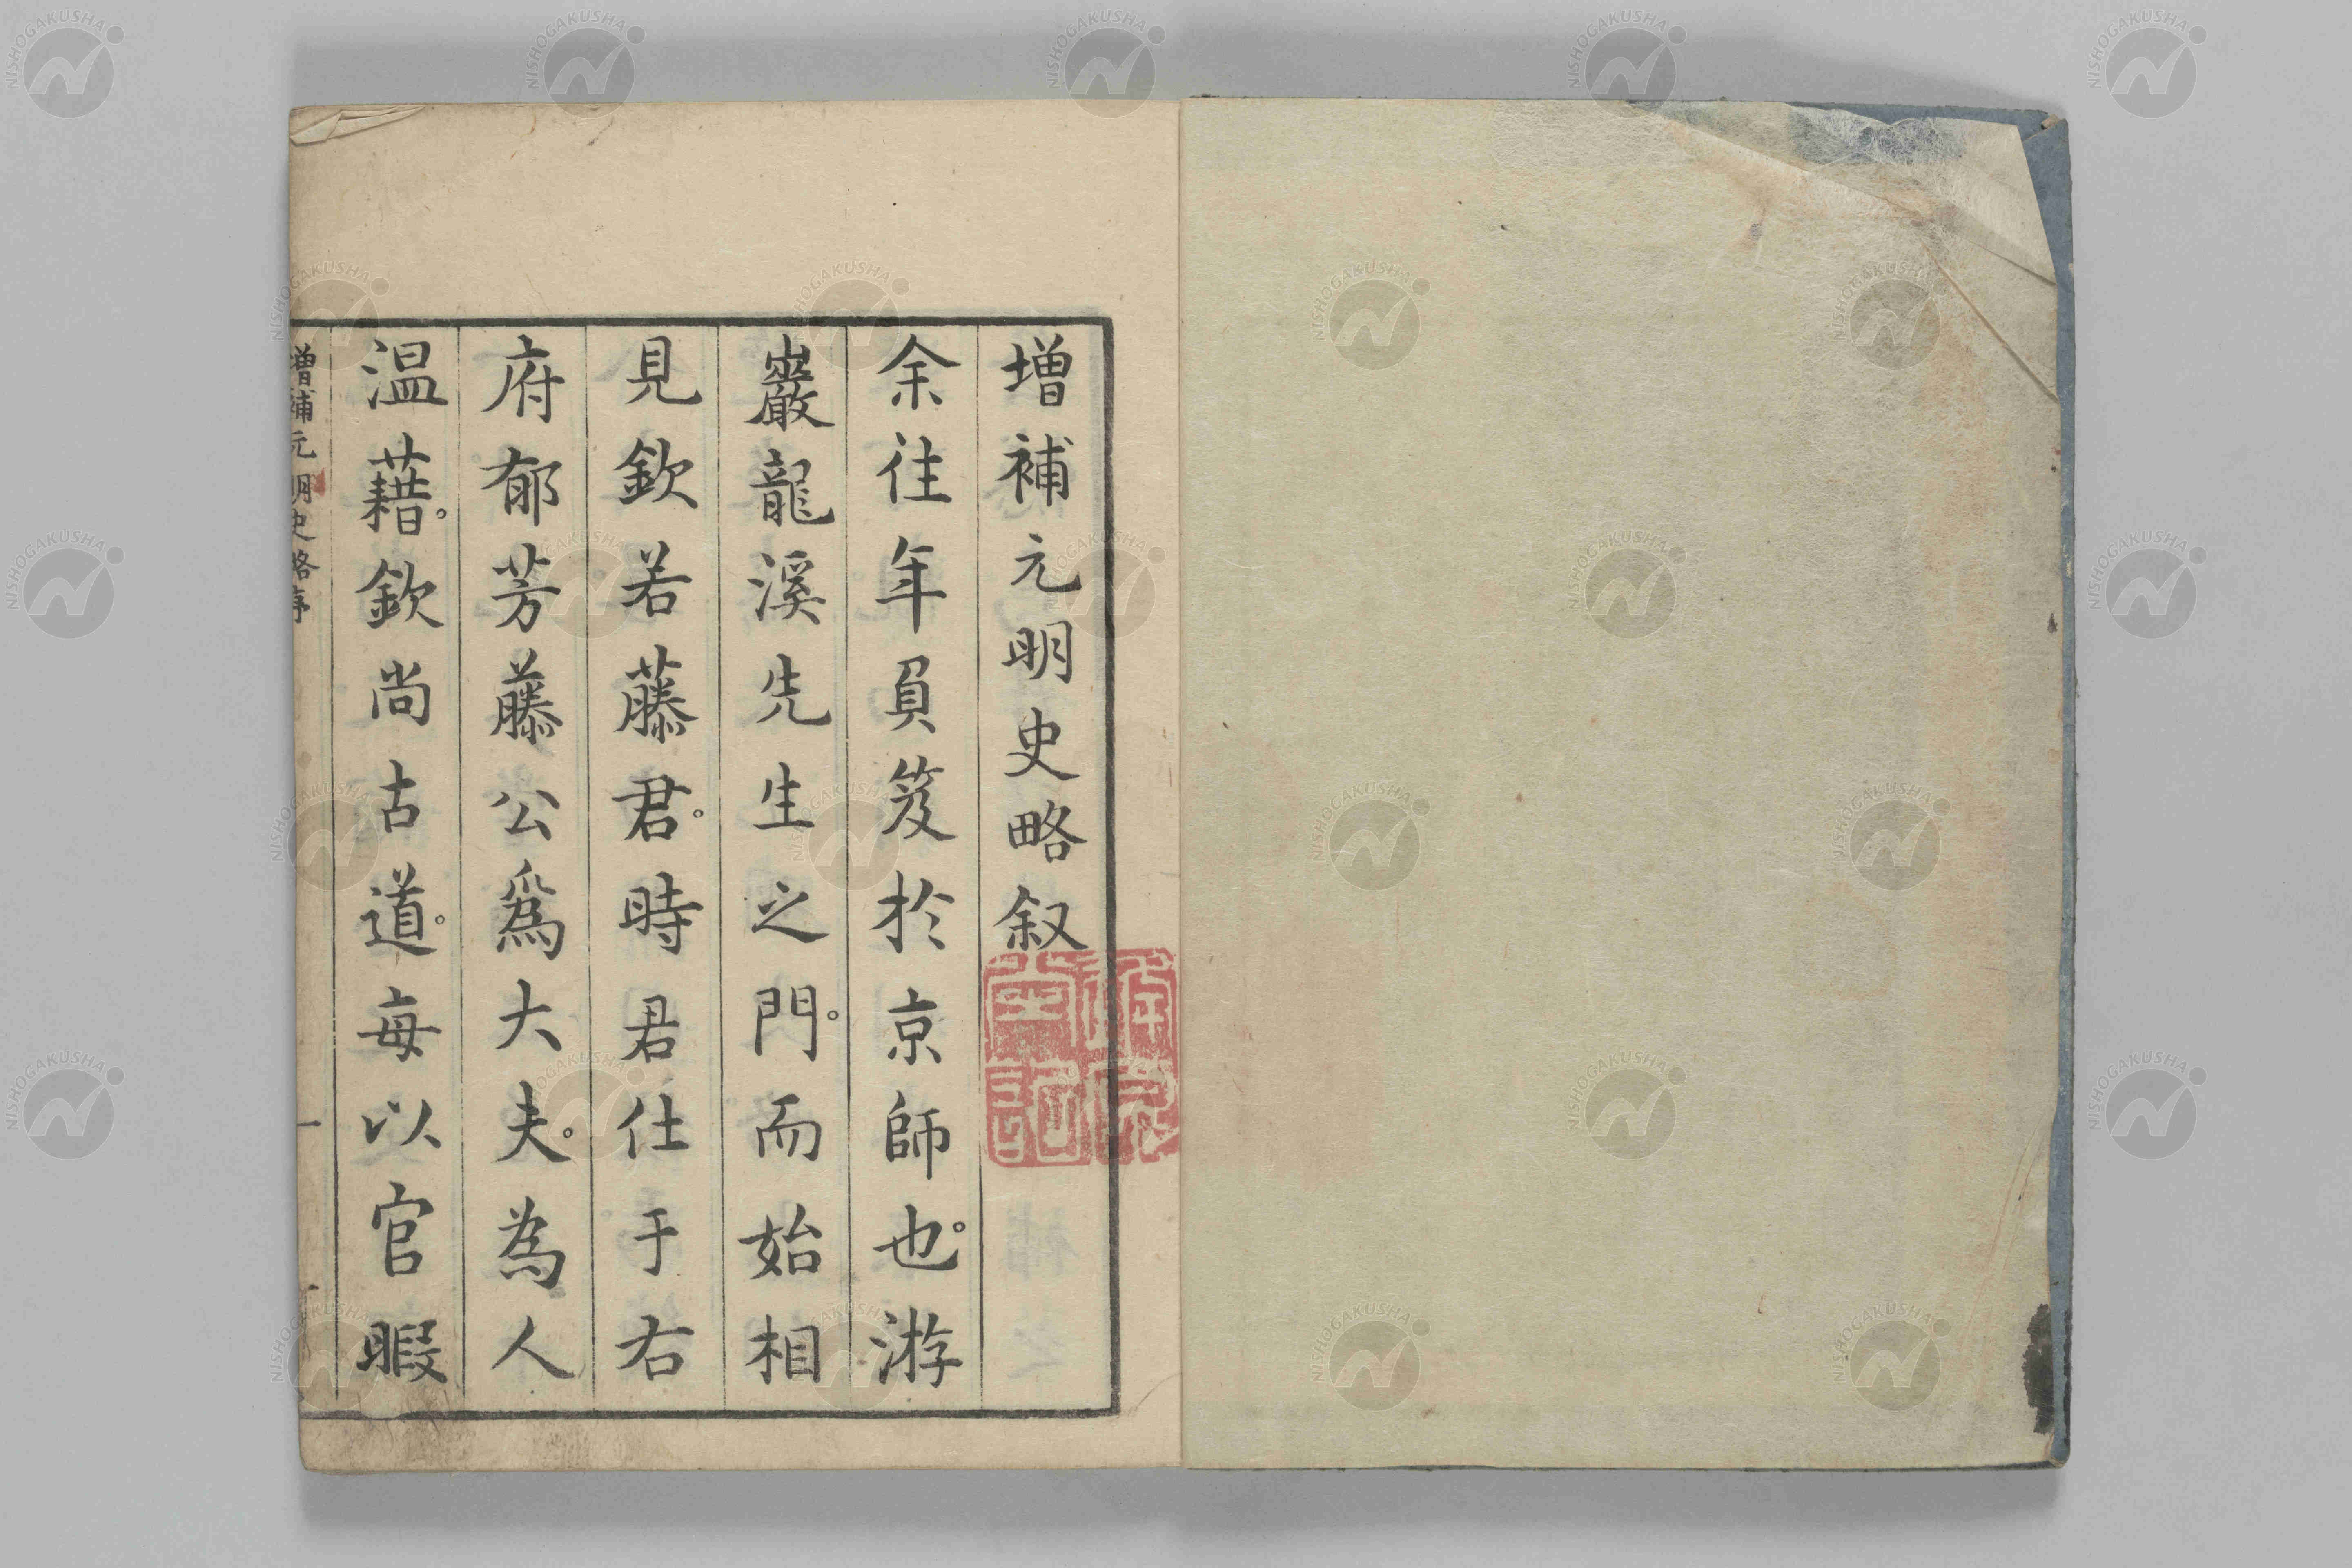 増補元明史略叙
余往年負笈於京師也。游
巖龍溪先生之門。而始相
見欽若藤君。時君仕于右
府郁芳藤公爲大夫。為人
温藉。欽尚古道。每以官暇
増補元明史略序
一
NISHOGAKUSHA